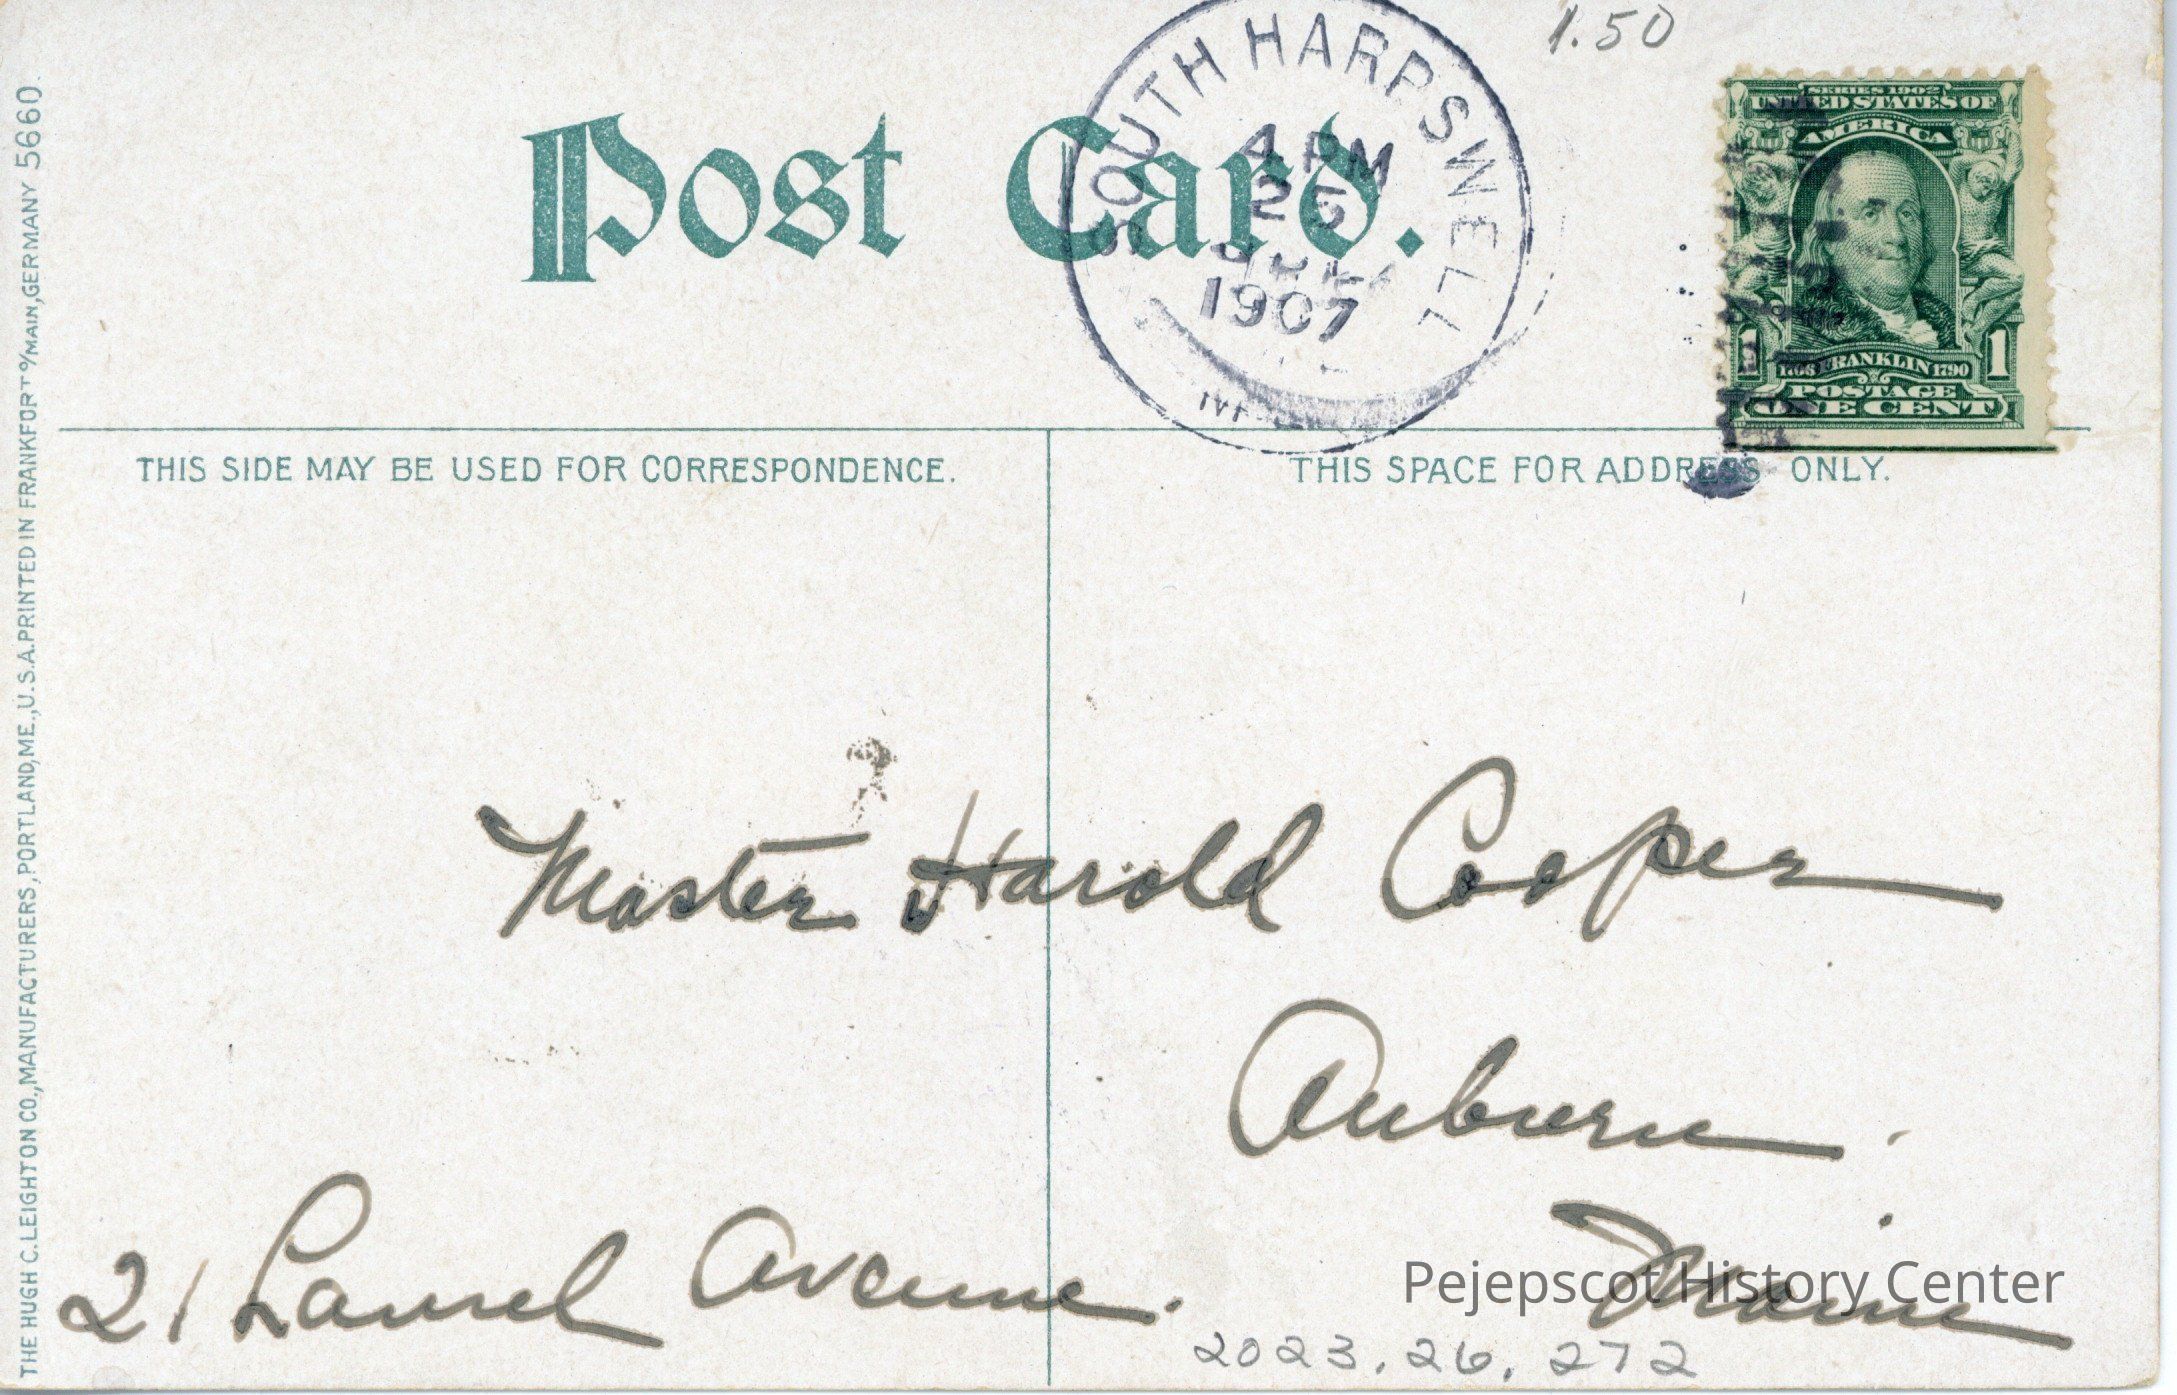 1.50
SOUTH HARPSWELL
4 PM
25
1907
SERIES 1902
UNITED STATES OF
AMERICA
1706 FRANKLIN 1790
1 1
POSTAGE
ONE CENT
Post Card.
THIS SIDE MAY BE USED FOR CORRESPONDENCE.
THIS SPACE FOR ADDRESS ONLY.
Master Harold Cooper
Auburn.
Maine
21 Laurel Avenue.
Pejepscot History Center
2023.26.272
THE HUGH C. LEIGHTON CO., MANUFACTURERS, PORTLAND, ME., U.S.A. PRINTED IN FRANKFORT o/MAIN, GERMANY 5660.